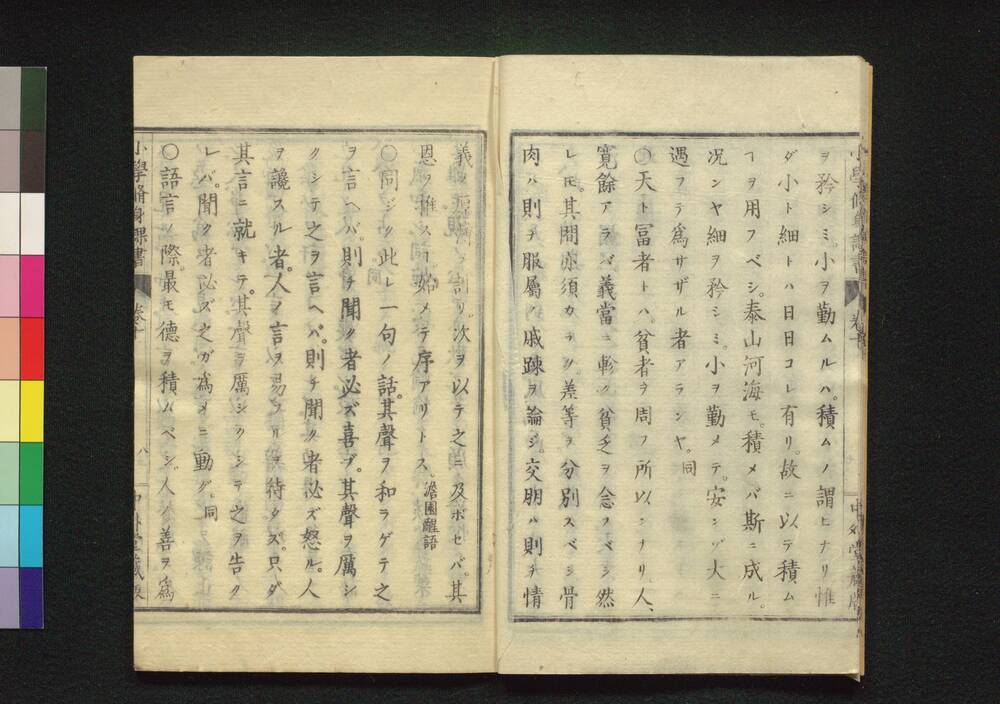 ヲ矜シミ。小ヲ勤ムルハ。積ムノ謂ヒナリ惟
ダ小ト細トハ日日コレ有リ。故ニ以テ積ム
ヿヲ用フベシ。泰山河海モ。積メバ斯ニ成ル。
况ンヤ細ヲ矜シミ。小ヲ勤メテ。安ンゾ大ニ
遇フテ爲サザル者アランヤ。同
〇天ト冨者トハ。貧者ヲ周フ所以ンナリ人、
寛餘アラバ義當ニ軫ク貧乏ヲ念フベシ然
レモ。其間亦須カラク。差等ヲ分別スベシ骨
肉ハ則チ服屬ノ戚踈ヲ論ジ。交朋ハ則チ情
義ノ割リ。次ヲ以テ之ニ及ボセバ。其
恩ヲ推ス始メテ序アリトス。澹園醒語
〇同ジク此レ一句ノ話。其聲ヲ和ラゲテ之
ヲ言ヘバ。則チ聞ク者必ズ喜ブ。其聲ヲ厲シ
クシテ之ヲ言ヘバ。則チ聞ク者必ズ怒ル。人
ヲ讒スル者。人ノ言ヲ易フルヲ待タズ。只ダ
其言ニ就キテ。其聲ヲ厲シクシテ之ヲ告ク
レバ。聞ク者必ズ之ガ爲メニ動グ。同
〇語言ノ際。最モ德ヲ積ムベシ。人ノ善ヲ爲
小學脩身課書